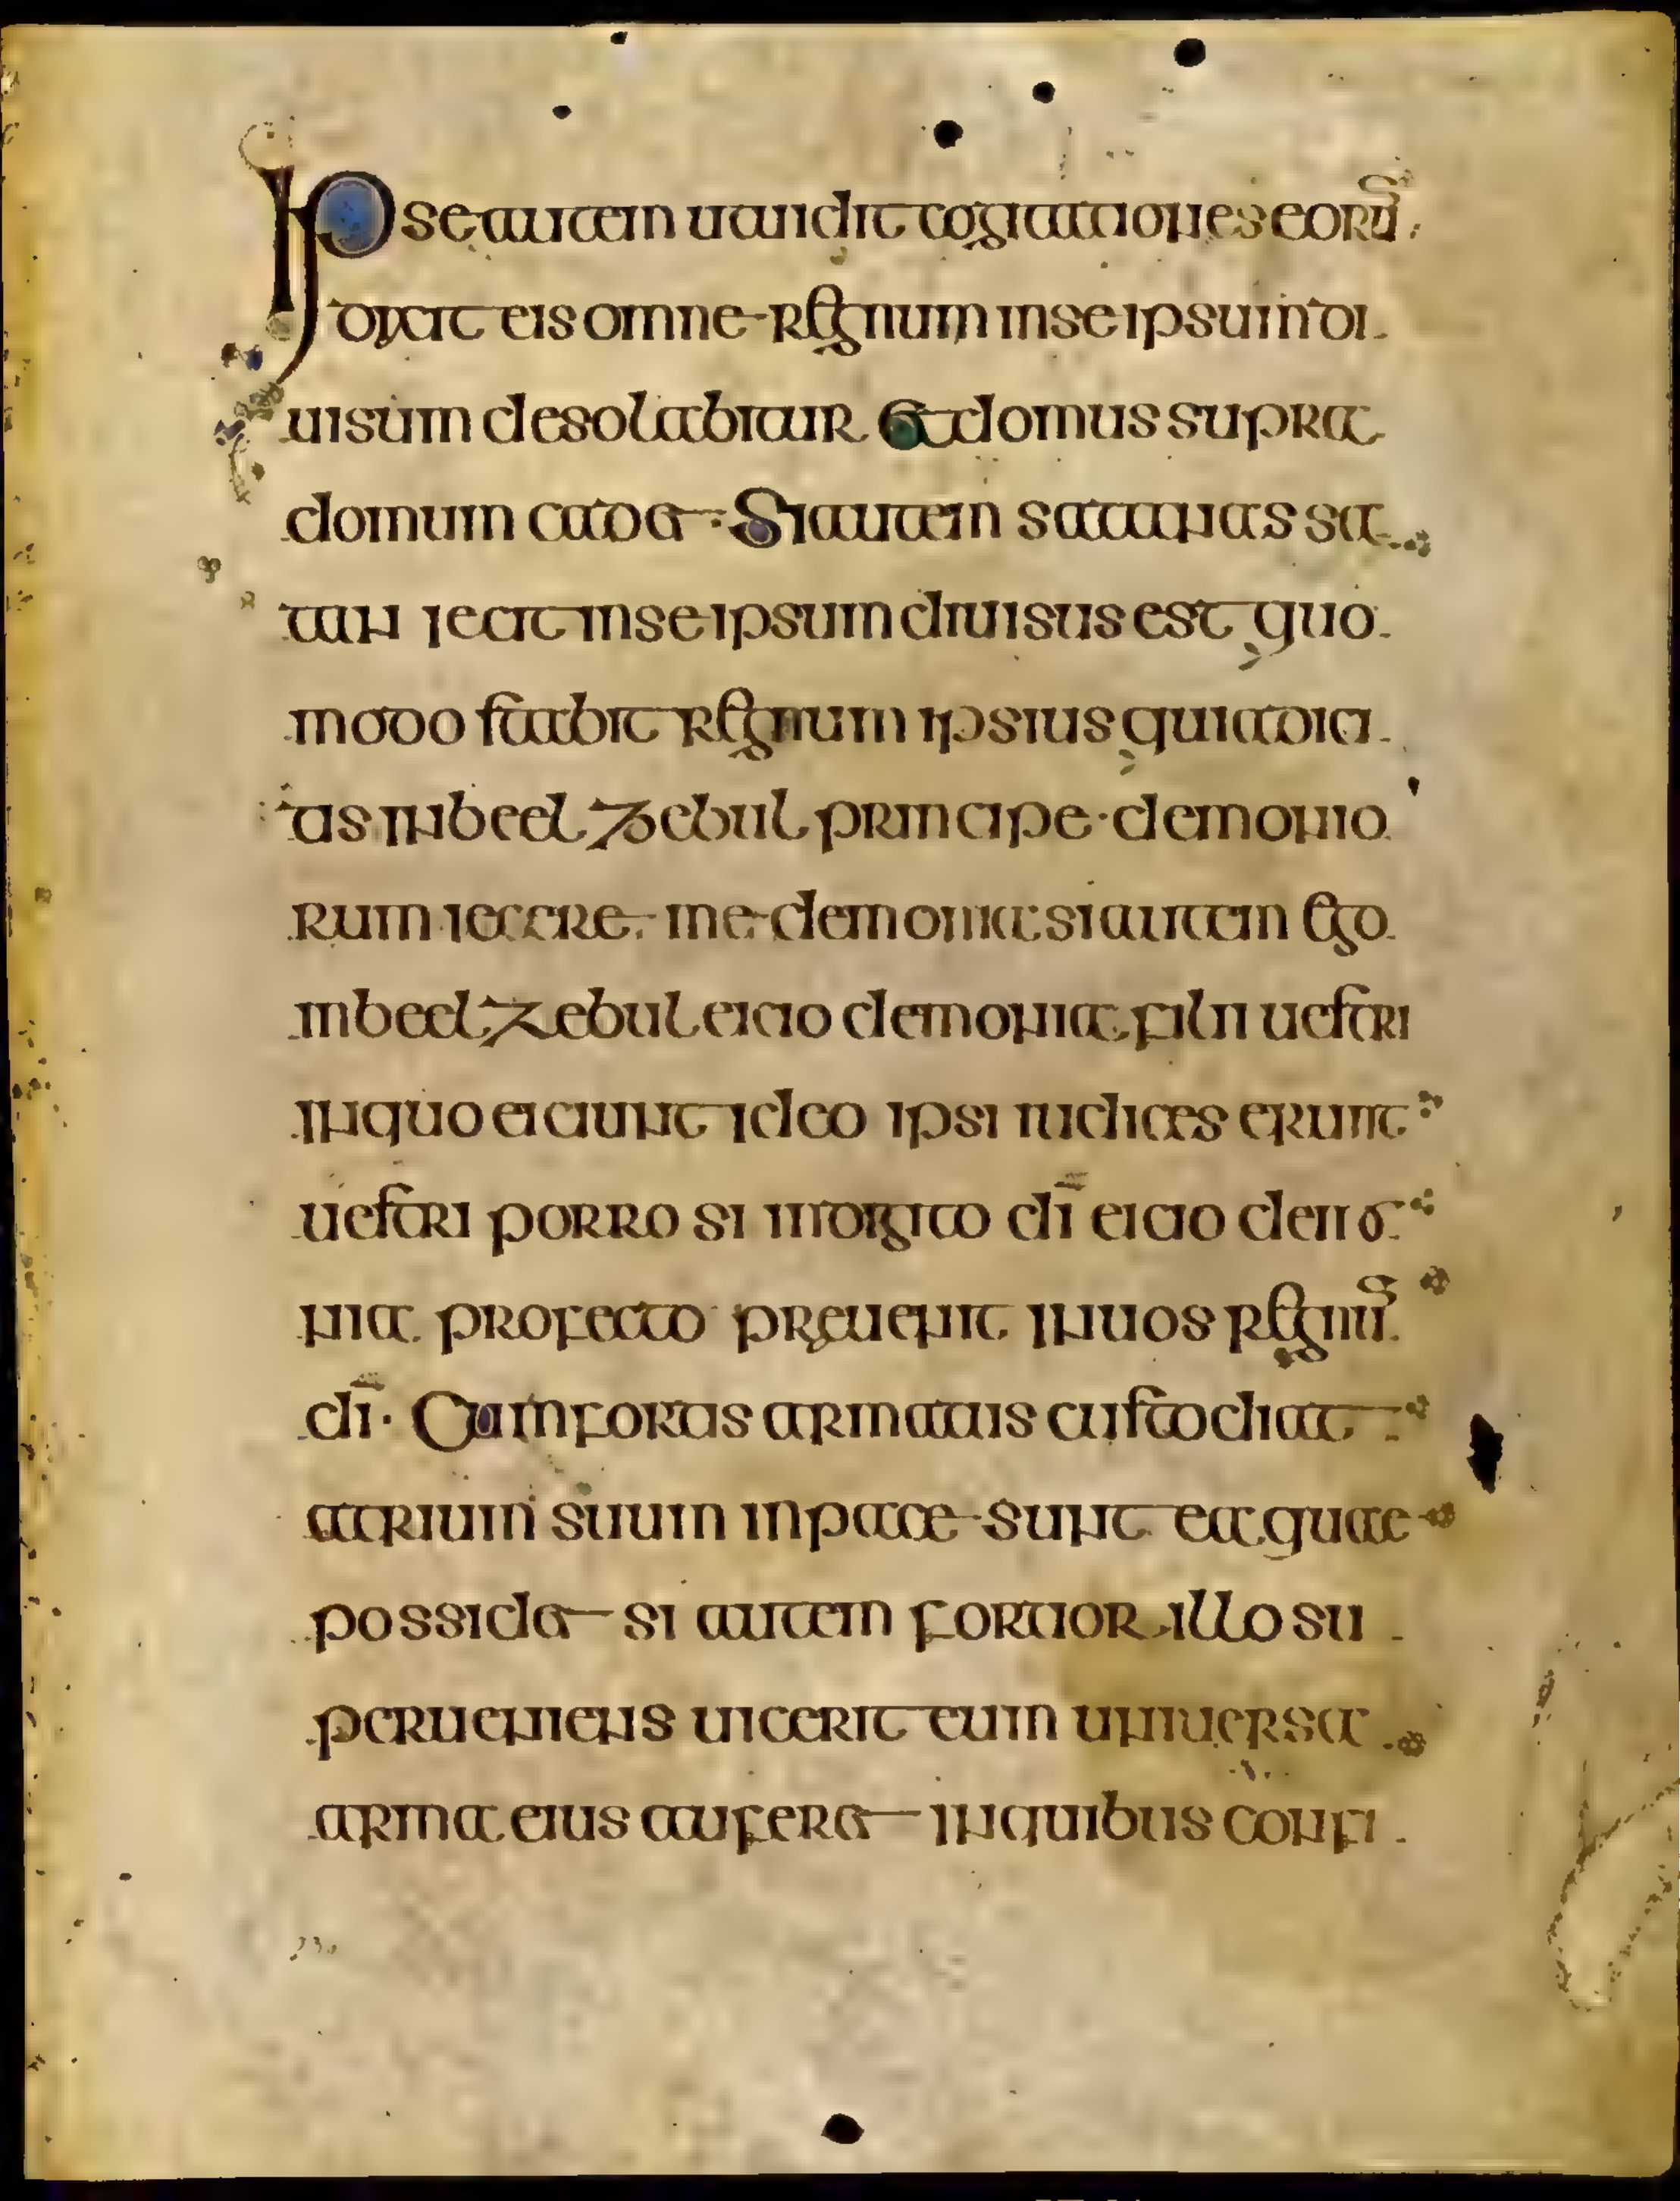 Ipse autem ut uidit cogitationes eorū
dixit eis omne regnum in se ipsum di
uisum desolabitur et domus supra
domum cadet Si autem satanas sa
tan iecit in se ipsum diuisus est quo
modo stabit regnum ipsius quia dici
tis in beel zebul principe demonio
rum iecere me demonia si autem ego
in beel zebul eicio demonia filii uestri
in quo eiciunt ideo ipsi iudices erunt
uestri porro si in digito dī eicio demo
nia profecto preuenit in uos regnū
dī · Cum fortis armatus custodiat
atrium suum in pace sunt ea quae
possidet si autem fortior illo su
perueniens uicerit eum uniuersa
arma eius auferet in quibus confi